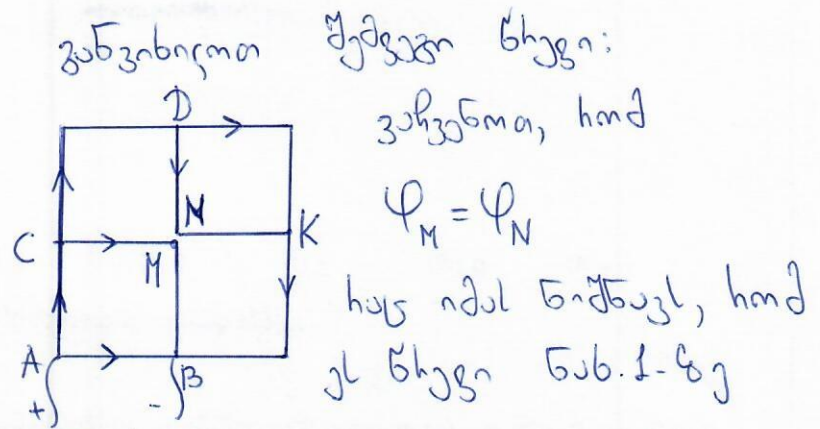 განვიხილოთ შემდეგი წრედი:
D
ვაჩვენოთ, რომ
N
φ_M = φ_N
C
K
M
რაც იმას ნიშნავს, რომ
A
B
ეს წრედი ნახ.1-ზე
+
-